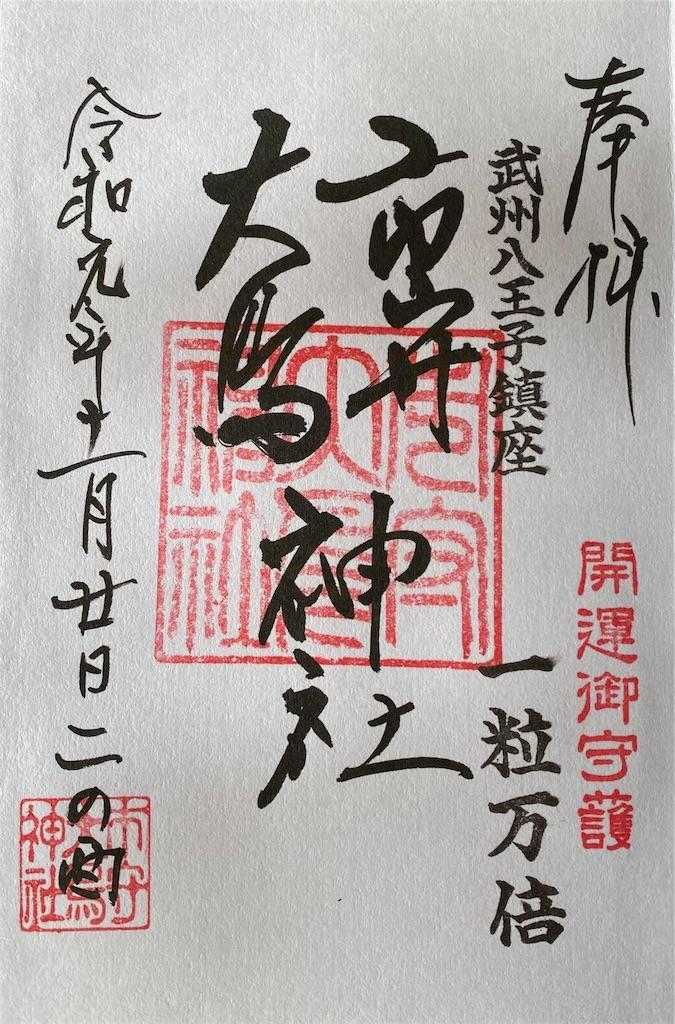 奉拝
開運御守護
武州八王子鎮座
一粒万倍
市守
大鳥
神社
市守
大鳥
神社
令和元年十一月廿日二の酉
市守
大鳥
神社